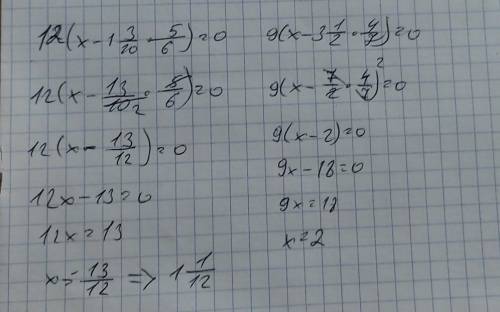 12(x-1 3/10 · 5/6)=0
12(x- 13/10 2 · 5/6)=0
12(x- 13/12)=0
12x-13=0
12x=13
x= 13/12 => 1 1/12
9(x-3 1/2 · 4/7)=0
9(x- 7/2 · 4/7 2)=0
9(x-2)=0
9x-18=0
9x=18
x=2